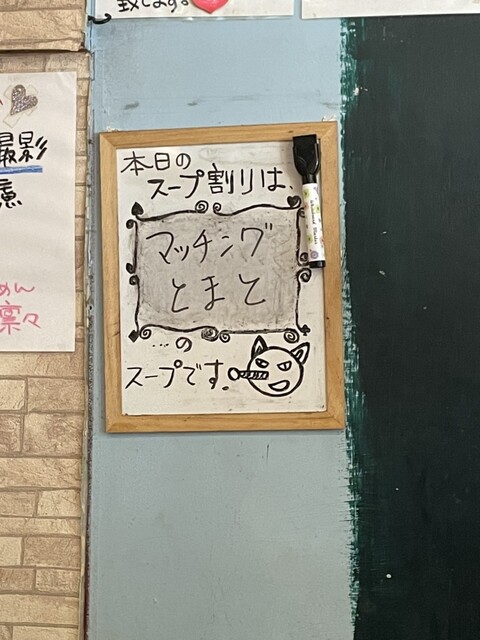 致します。
撮影
めん
凛々
本日の
スープ割りは、
マッチング
とまと
…の
スープです。